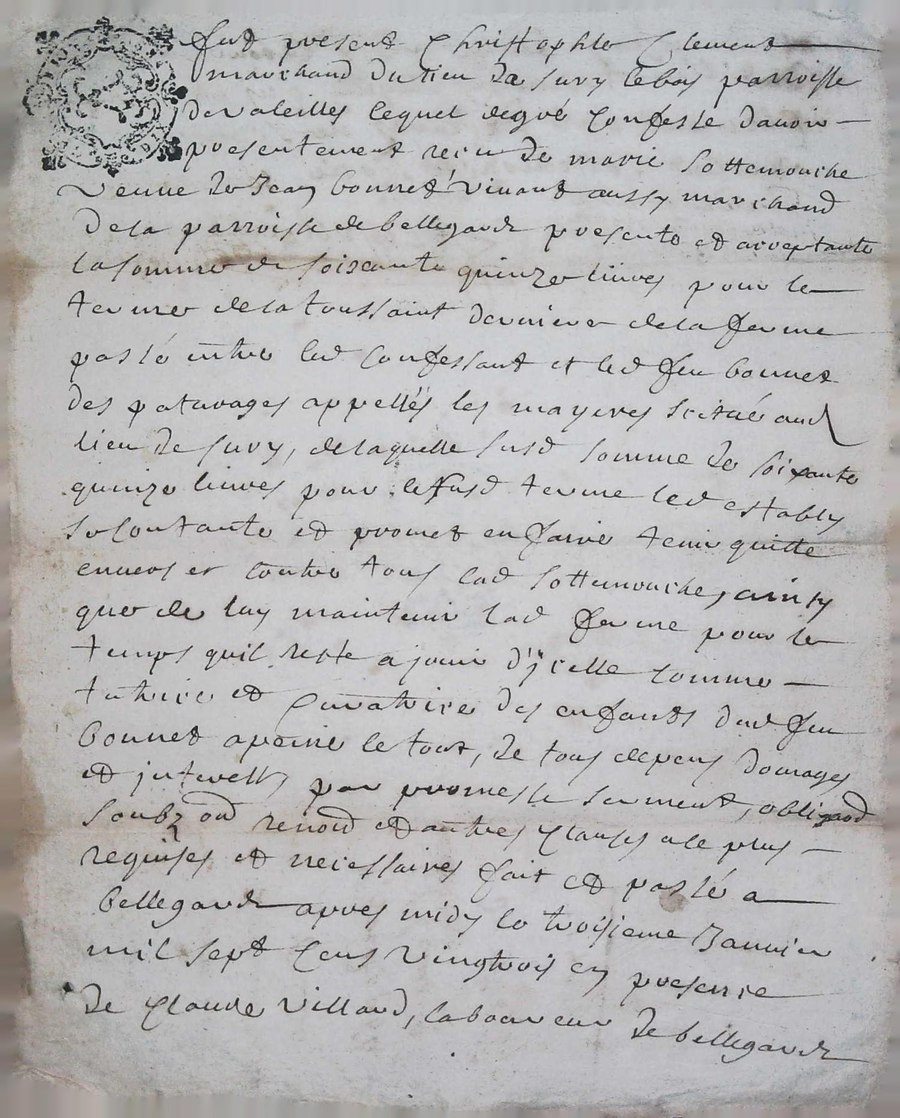 fut present Christophle Clement
marchand du lieu de Sury le bois parroisse
de valeilles lequel de gré Confesse dauoir
presentement receu de marie Sottemouche
veuue de Jean bonnet viuant aussy marchand
de la parroisse de bellegarde presente et acceptante
la somme de soiscante quinze liures pour le
terme de la toussaint derniere de la ferme
passé entre led Confessant et led feu bonnet
des paturages appellés les mayeres scitué aud
lieu de Sury, de laquelle susd somme de soixante
quinze liures pour le susd terme led estably
se Contante et promet en faire tenir quitte
enuers et contre tous lad Sottemouche, ainsy
que de luy maintenir lad ferme pour le
temps quil reste a jouir d'jcelle comme
tutrice et Curatrice des enfants dud feu
bonnet a peine le tout, de tous depens domages
et jnterests par promesse serment, obligaod
soubz od renod et autres Clauses a le plus
requises et necessaires fait et passé a
bellegarde apres midy le troisieme Januier
mil sept Cens vingtrois en presence
de Claude villard, laboureur de bellegarde